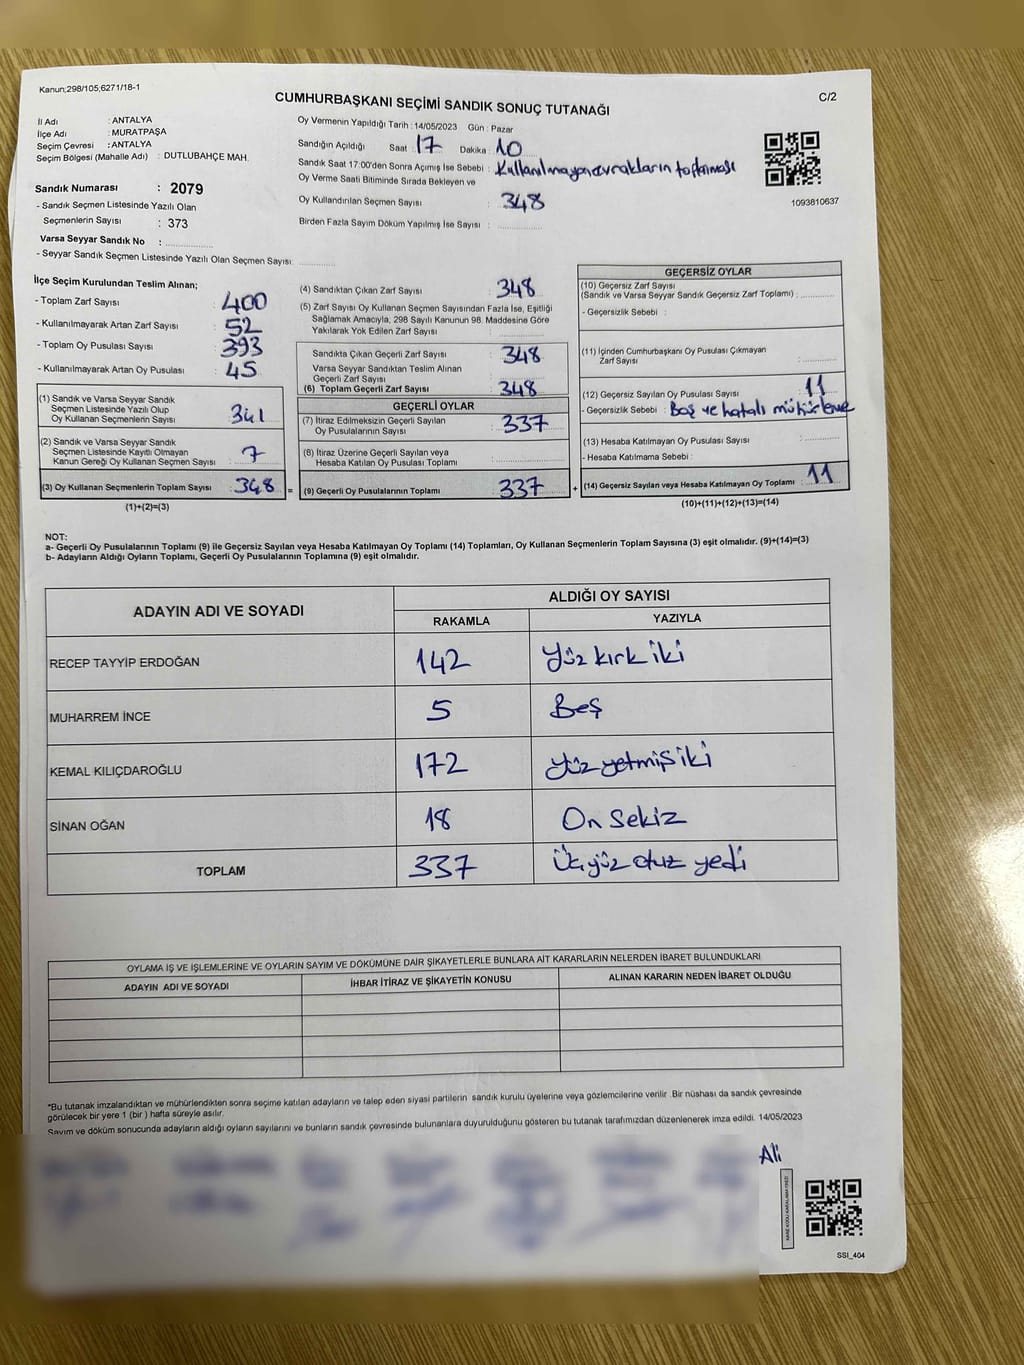 Kanun;298/105,6271/18-1
CUMHURBAŞKANI SEÇİMİ SANDIK SONUÇ TUTANAĞI
C/2
İl Adı : ANTALYA
İlçe Adı : MURATPAŞA
Seçim Çevresi : ANTALYA
Seçim Bölgesi (Mahalle Adı) : DUTLUBAHÇE MAH.
Sandık Numarası : 2079
- Sandık Seçmen Listesinde Yazılı Olan
Seçmenlerin Sayısı : 373
Varsa Seyyar Sandık No : ................
- Seyyar Sandık Seçmen Listesinde Yazılı Olan Seçmen Sayısı: ................
Oy Vermenin Yapıldığı Tarih : 14/05/2023 Gün : Pazar
Sandığın Açıldığı Saat : 17 Dakika : 10
Sandık Saat 17:00'den Sonra Açımış İse Sebebi : Kullanılmayan evrakların toplanması
Oy Verme Saati Bitiminde Sırada Bekleyen ve
Oy Kullandırılan Seçmen Sayısı : 348
Birden Fazla Sayım Döküm Yapılmış İse Sayısı : ................
1093810637
İlçe Seçim Kurulundan Teslim Alınan;
- Toplam Zarf Sayısı : 400
- Kullanılmayarak Artan Zarf Sayısı : 52
- Toplam Oy Pusulası Sayısı : 393
- Kullanılmayarak Artan Oy Pusulası : 45
(1) Sandık ve Varsa Seyyar Sandık
Seçmen Listesinde Yazılı Olup
Oy Kullanan Seçmenlerin Sayısı : 341
(2) Sandık ve Varsa Seyyar Sandık
Seçmen Listesinde Kayıtlı Olmayan
Kanun Gereği Oy Kullanan Seçmen Sayısı : 7
(3) Oy Kullanan Seçmenlerin Toplam Sayısı : 348 =
(1)+(2)=(3)
(4) Sandıktan Çıkan Zarf Sayısı : 348
(5) Zarf Sayısı Oy Kullanan Seçmen Sayısından Fazla İse, Eşitliği
Sağlamak Amacıyla, 298 Sayılı Kanunun 98. Maddesine Göre
Yakılarak Yok Edilen Zarf Sayısı : ................
Sandıkta Çıkan Geçerli Zarf Sayısı : 348
Varsa Seyyar Sandıktan Teslim Alınan
Geçerli Zarf Sayısı : ................
(6) Toplam Geçerli Zarf Sayısı : 348
GEÇERLİ OYLAR
(7) İtiraz Edilmeksizin Geçerli Sayılan
Oy Pusulalarının Sayısı : 337
(8) İtiraz Üzerine Geçerli Sayılan veya
Hesaba Katılan Oy Pusulası Toplamı : ................
(9) Geçerli Oy Pusulalarının Toplamı : 337 +
GEÇERSİZ OYLAR
(10) Geçersiz Zarf Sayısı
(Sandık ve Varsa Seyyar Sandık Geçersiz Zarf Toplamı) : ............
- Geçersizlik Sebebi :
(11) İçinden Cumhurbaşkanı Oy Pusulası Çıkmayan
Zarf Sayısı : ............
(12) Geçersiz Sayılan Oy Pusulası Sayısı : 11
- Geçersizlik Sebebi : Boş ve hatalı mühürleme
(13) Hesaba Katılmayan Oy Pusulası Sayısı : ............
- Hesaba Katılmama Sebebi :
(14) Geçersiz Sayılan veya Hesaba Katılmayan Oy Toplamı : 11
(10)+(11)+(12)+(13)=(14)
NOT:
a- Geçerli Oy Pusulalarının Toplamı (9) ile Geçersiz Sayılan veya Hesaba Katılmayan Oy Toplamı (14) Toplamları, Oy Kullanan Seçmenlerin Toplam Sayısına (3) eşit olmalıdır. (9)+(14)=(3)
b- Adayların Aldığı Oyların Toplamı, Geçerli Oy Pusulalarının Toplamına (9) eşit olmalıdır.
ADAYIN ADI VE SOYADI
ALDIĞI OY SAYISI
RAKAMLA YAZIYLA
RECEP TAYYİP ERDOĞAN 142 Yüz kırk iki
MUHARREM İNCE 5 Beş
KEMAL KILIÇDAROĞLU 172 Yüz yetmiş iki
SİNAN OĞAN 18 On Sekiz
TOPLAM 337 Üç yüz otuz yedi
OYLAMA İŞ VE İŞLEMLERİNE VE OYLARIN SAYIM VE DÖKÜMÜNE DAİR ŞİKAYETLERLE BUNLARA AİT KARARLARIN NELERDEN İBARET BULUNDUKLARI
ADAYIN ADI VE SOYADI İHBAR İTİRAZ VE ŞİKAYETİN KONUSU ALINAN KARARIN NEDEN İBARET OLDUĞU
*Bu tutanak imzalandıktan ve mühürlendikten sonra seçime katılan adayların ve talep eden siyasi partilerin sandık kurulu üyelerine veya gözlemcilerine verilir .Bir nüshası da sandık çevresinde
görülecek bir yere 1 (bir ) hafta süreyle asılır.
Sayım ve döküm sonucunda adayların aldığı oyların sayılarını ve bunların sandık çevresinde bulunanlara duyurulduğunu gösteren bu tutanak tarafımızdan düzenlenerek imza edildi. 14/05/2023
Ali
SSI_404